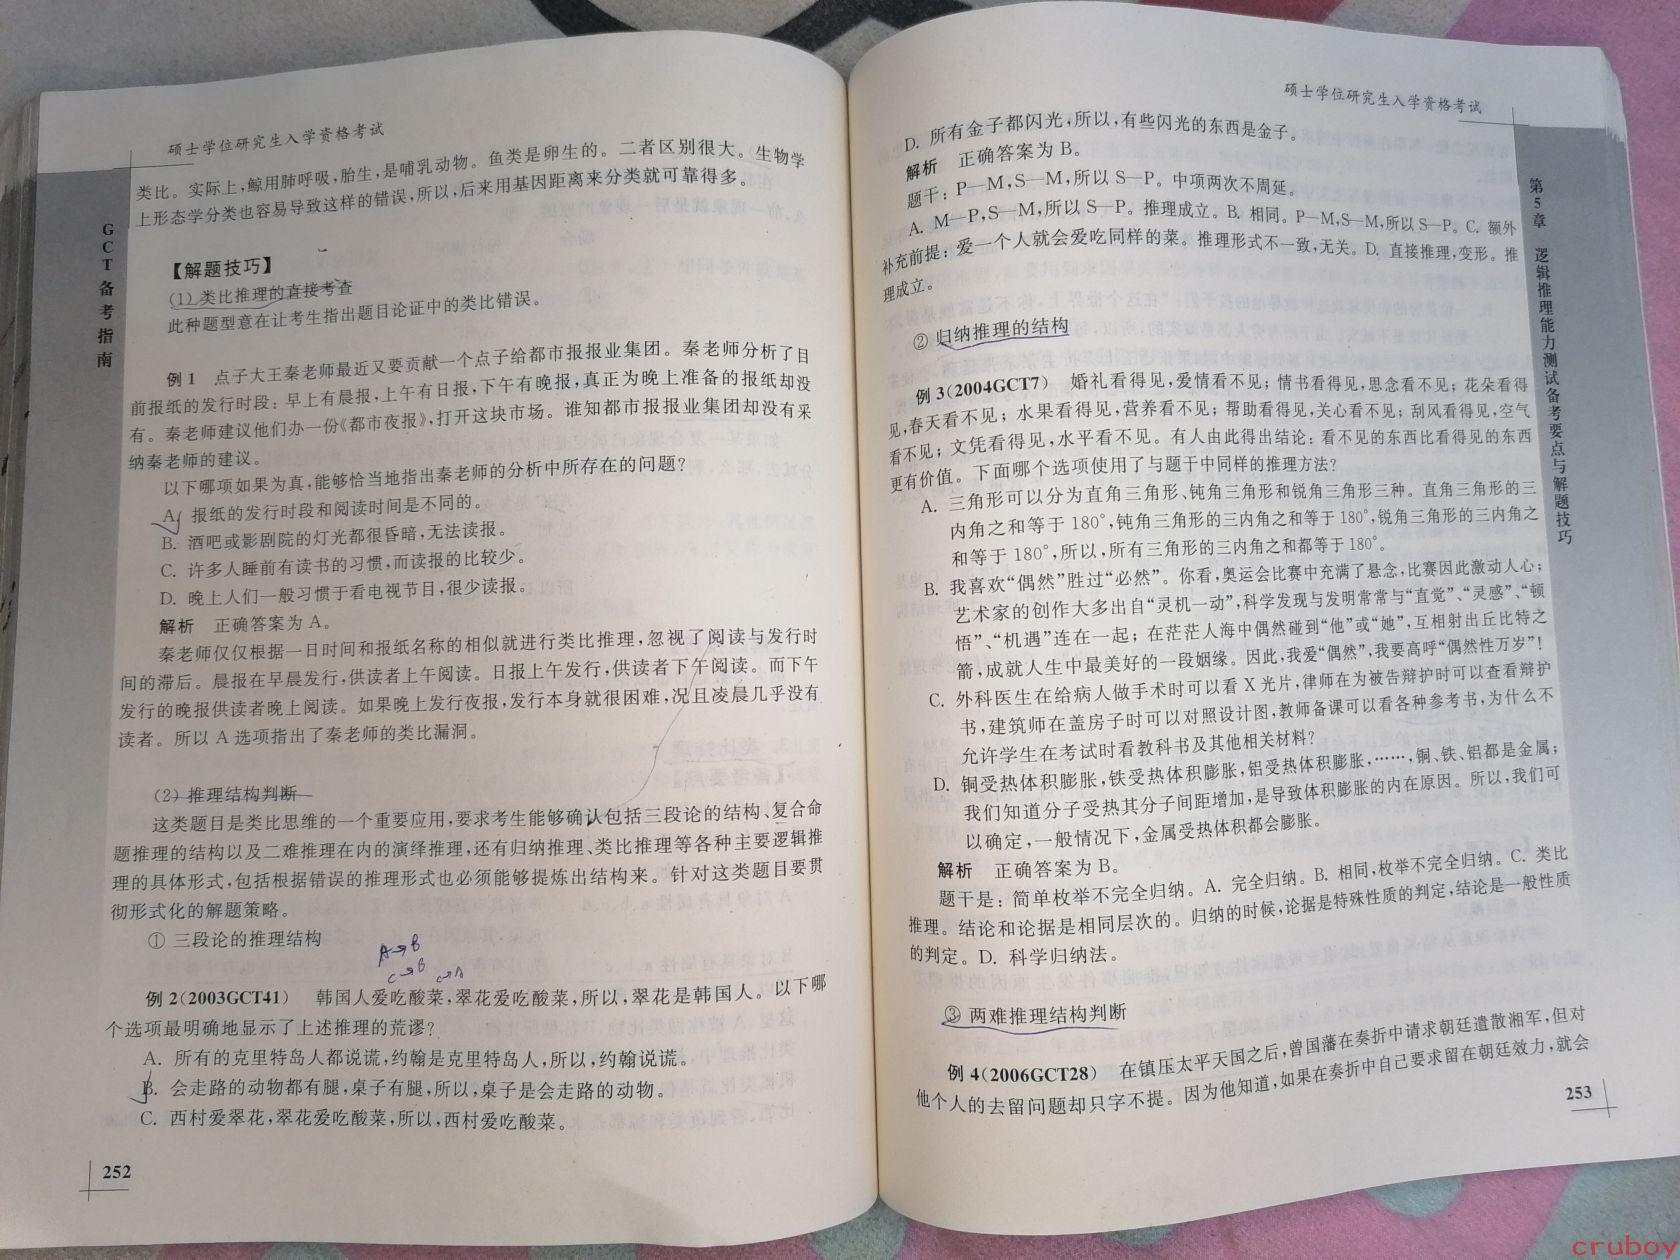 硕士学位研究生入学资格考试
类比。实际上,鲸用肺呼吸,胎生,是哺乳动物。鱼类是卵生的。二者区别很大。生物学
上形态学分类也容易导致这样的错误,所以,后来用基因距离来分类就可靠得多。
GCT备考指南
【解题技巧】
(1) 类比推理的直接考查
此种题型意在让考生指出题目论证中的类比错误。
例 1 点子大王秦老师最近又要贡献一个点子给都市报报业集团。秦老师分析了目
前报纸的发行时段: 早上有晨报,上午有日报,下午有晚报,真正为晚上准备的报纸却没
有。秦老师建议他们办一份《都市夜报》,打开这块市场。谁知都市报报业集团却没有采
纳秦老师的建议。
以下哪项如果为真,能够恰当地指出秦老师的分析中所存在的问题?
A. 报纸的发行时段和阅读时间是不同的。
B. 酒吧或影剧院的灯光都很昏暗,无法读报。
C. 许多人睡前有读书的习惯,而读报的比较少。
D. 晚上人们一般习惯于看电视节目,很少读报。
解析 正确答案为 A。
秦老师仅仅根据一日时间和报纸名称的相似就进行类比推理,忽视了阅读与发行时
间的滞后。晨报在早晨发行,供读者上午阅读。日报上午发行,供读者下午阅读。而下午
发行的晚报供读者晚上阅读。如果晚上发行夜报,发行本身就很困难,况且凌晨几乎没有
读者。所以 A 选项指出了秦老师的类比漏洞。
(2) 推理结构判断
这类题目是类比思维的一个重要应用,要求考生能够确认包括三段论的结构、复合命
题推理的结构以及二难推理在内的演绎推理,还有归纳推理、类比推理等各种主要逻辑推
理的具体形式,包括根据错误的推理形式也必须能够提炼出结构来。针对这类题目要贯
彻形式化的解题策略。
① 三段论的推理结构
A→B
C→B C→A
例 2(2003GCT41) 韩国人爱吃酸菜,翠花爱吃酸菜,所以,翠花是韩国人。以下哪
个选项最明确地显示了上述推理的荒谬?
A. 所有的克里特岛人都说谎,约翰是克里特岛人,所以,约翰说谎。
B. 会走路的动物都有腿,桌子有腿,所以,桌子是会走路的动物。
C. 西村爱翠花,翠花爱吃酸菜,所以,西村爱吃酸菜。
252
硕士学位研究生入学资格考试
D. 所有金子都闪光,所以,有些闪光的东西是金子。
解析 正确答案为 B。
题干: P—M,S—M,所以 S—P。中项两次不周延。
A. M—P,S—M,所以 S—P。推理成立。B. 相同。P—M,S—M,所以 S—P。C. 额外
补充前提: 爱一个人就会爱吃同样的菜。推理形式不一致,无关。D. 直接推理,变形。推
理成立。
② 归纳推理的结构
例 3(2004GCT7) 婚礼看得见,爱情看不见; 情书看得见,思念看不见; 花朵看得
见,春天看不见; 水果看得见,营养看不见; 帮助看得见,关心看不见; 刮风看得见,空气
看不见; 文凭看得见,水平看不见。有人由此得出结论: 看不见的东西比看得见的东西
更有价值。 下面哪个选项使用了与题于中同样的推理方法?
A. 三角形可以分为直角三角形、钝角三角形和锐角三角形三种。直角三角形的三
内角之和等于 180°,钝角三角形的三内角之和等于 180°,锐角三角形的三内角之
和等于 180°,所以,所有三角形的三内角之和都等于 180°。
B. 我喜欢“偶然”胜过“必然”。你看,奥运会比赛中充满了悬念,比赛因此激动人心;
艺术家的创作大多出自“灵机一动”,科学发现与发明常常与“直觉”、“灵感”、“顿
悟”、“机遇”连在一起; 在茫茫人海中偶然碰到“他”或“她”,互相射出丘比特之
箭,成就人生中最美好的一段姻缘。因此,我爱“偶然”,我要高呼“偶然性万岁”!
C. 外科医生在给病人做手术时可以看 X 光片,律师在为被告辩护时可以查看辩护
书,建筑师在盖房子时可以对照设计图,教师备课可以看各种参考书,为什么不
允许学生在考试时看教科书及其他相关材料?
D. 铜受热体积膨胀,铁受热体积膨胀,铝受热体积膨胀,……,铜、铁、铝都是金属;
我们知道分子受热其分子间距增加,是导致体积膨胀的内在原因。所以,我们可
以确定,一般情况下,金属受热体积都会膨胀。
解析 正确答案为 B。
题干是: 简单枚举不完全归纳。A. 完全归纳。B. 相同,枚举不完全归纳。C. 类比
推理。结论和论据是相同层次的。归纳的时候,论据是特殊性质的判定,结论是一般性质
的判定。D. 科学归纳法。
③ 两难推理结构判断
例 4(2006GCT28) 在镇压太平天国之后,曾国藩在奏折中请求朝廷遣散湘军,但对
他个人的去留问题却只字不提。因为他知道,如果在奏折中自己要求留在朝廷效力,就会
第5章 逻辑推理能力测试备考要点与解题技巧
253
cruboy